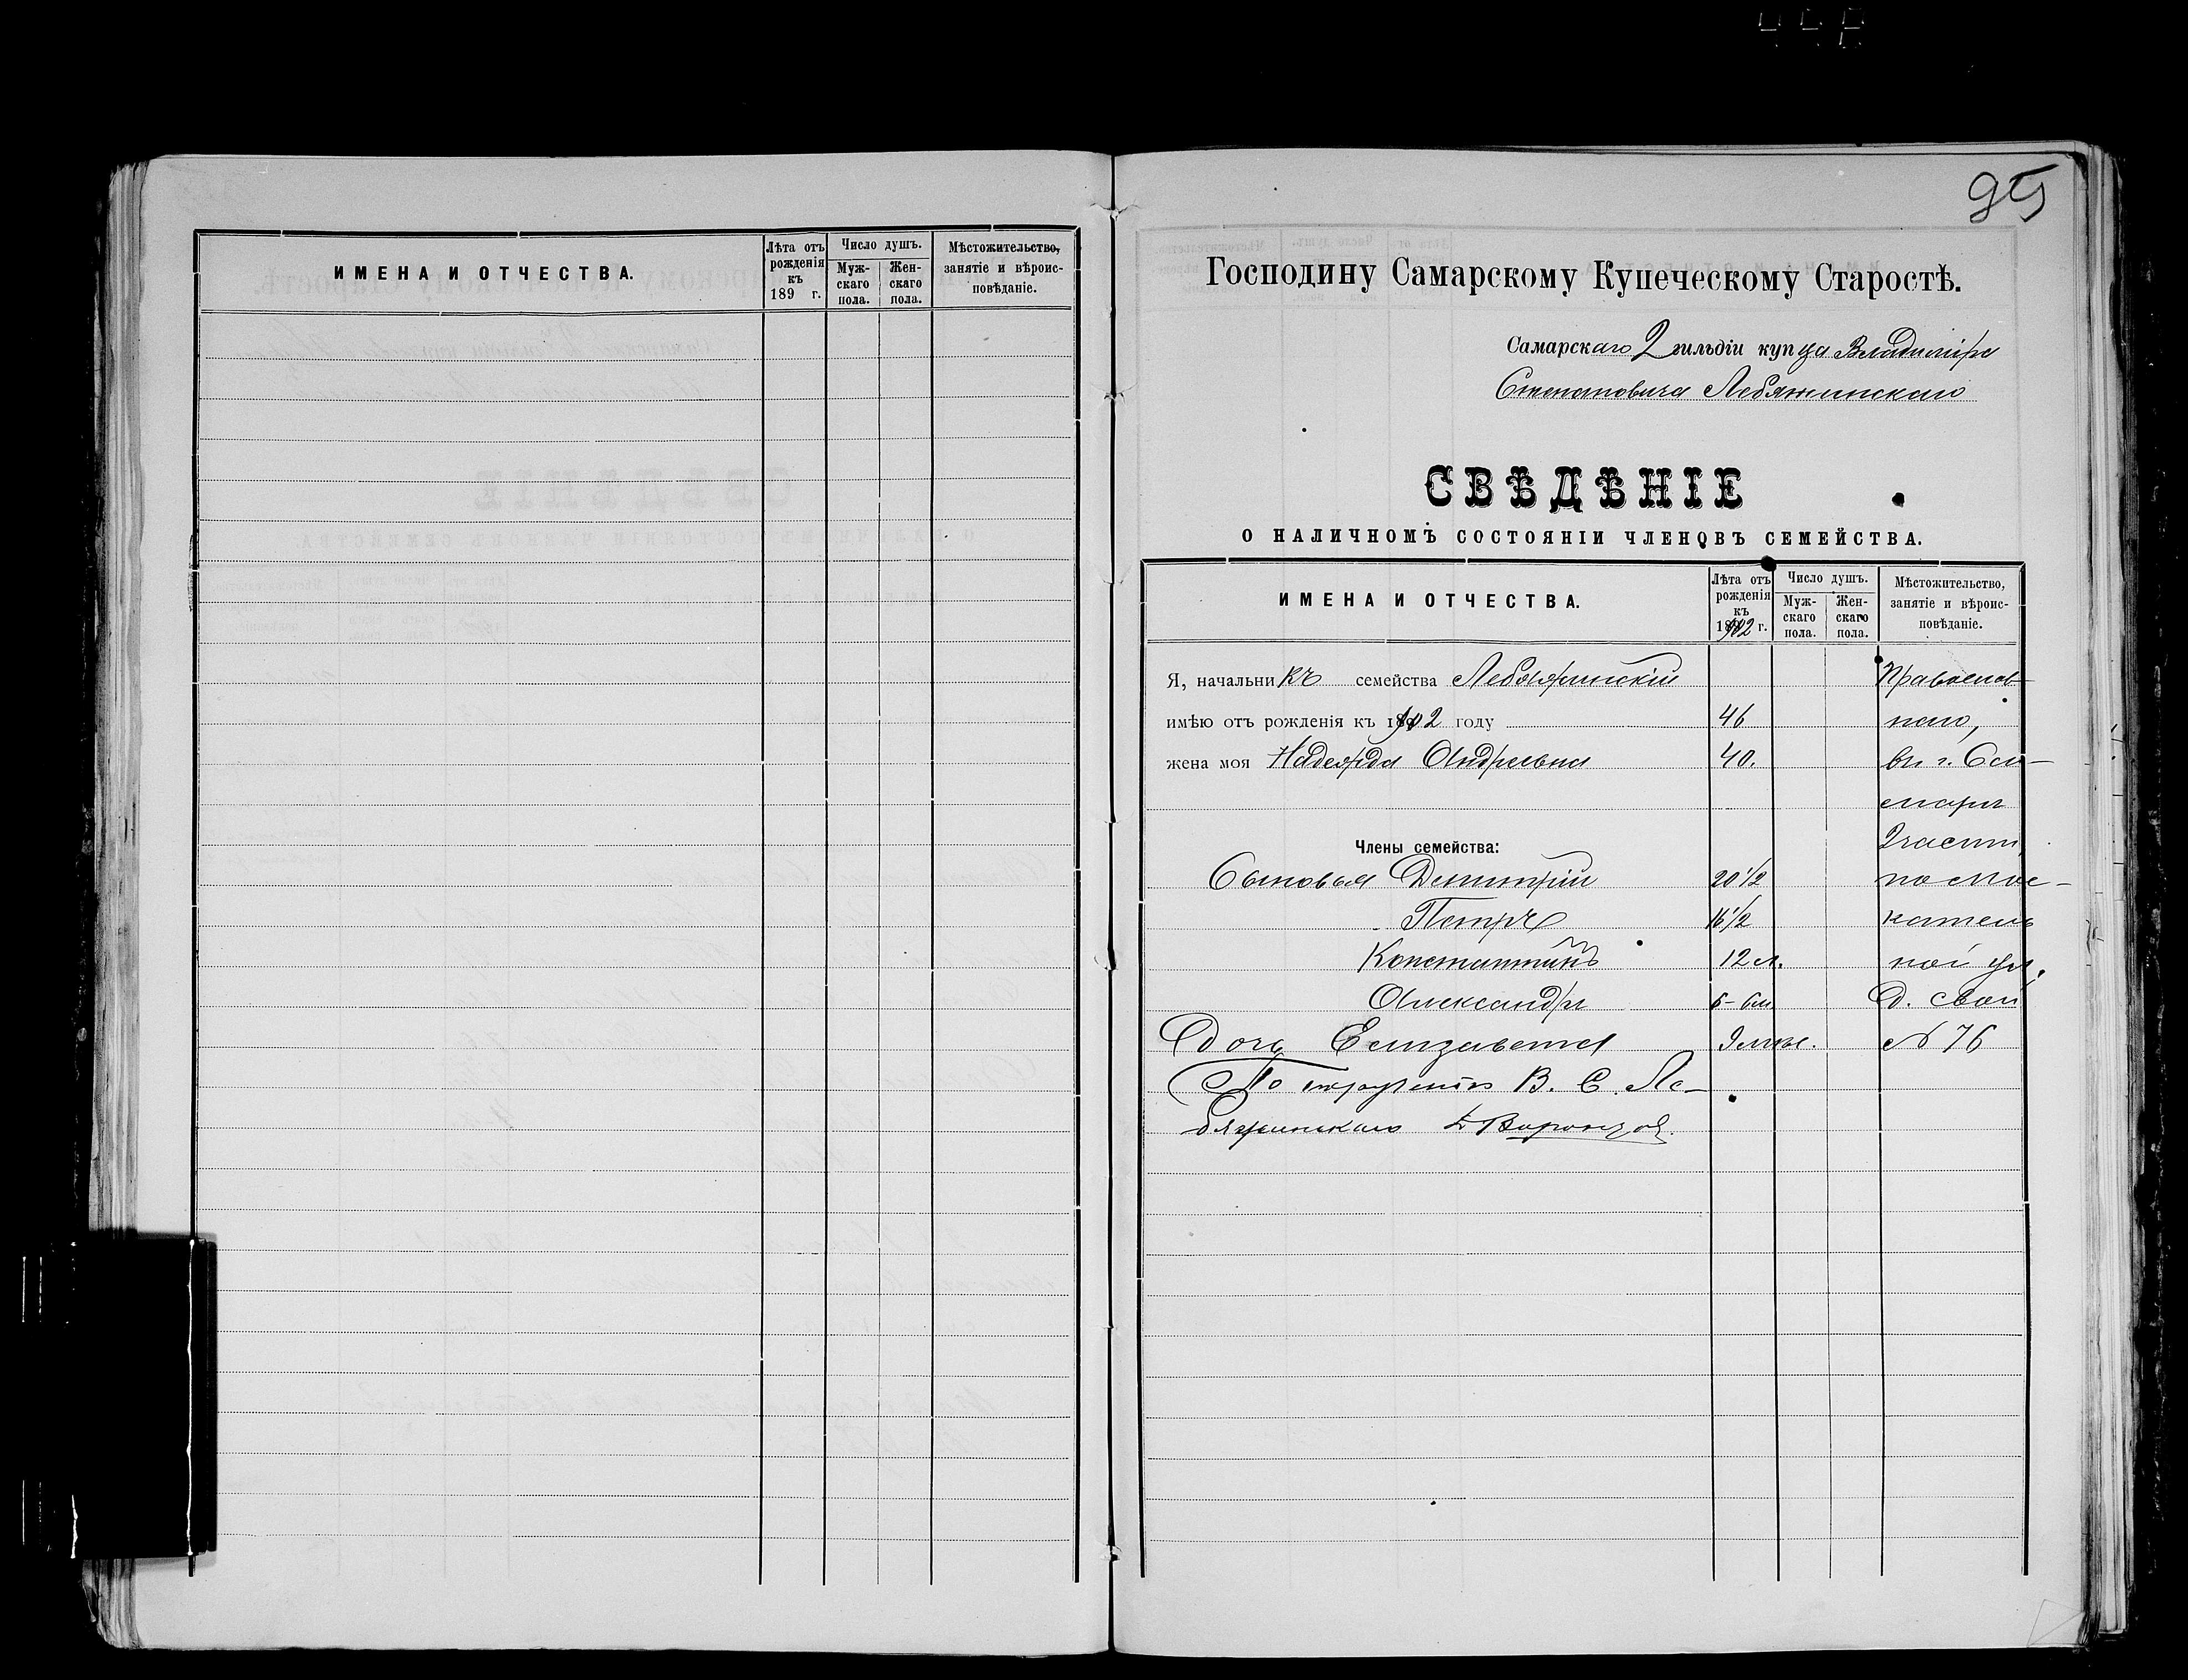 ИМЕНА И ОТЧЕСТВА.
Лѣта отъ рожденія къ 189 г.
Число душъ.
Мужскаго пола.
Женскаго пола.
Мѣстожительство, занятіе и вѣроисповѣданіе.
95
Господину Самарскому Купеческому Старостѣ.
Самарскаго 2 гильдіи купца Владиміра
Степановича Лебяжинскаго
СВѢДѢНІЕ
О НАЛИЧНОМЪ СОСТОЯНІИ ЧЛЕНОВЪ СЕМЕЙСТВА.
ИМЕНА И ОТЧЕСТВА.
Лѣта отъ рожденія къ 1902 г.
Число душъ.
Мужскаго пола.
Женскаго пола.
Мѣстожительство, занятіе и вѣроисповѣданіе.
Я, начальникъ семейства Лебяжинскій Православ-
имѣю отъ рожденія къ 1902 году 46 наго,
жена моя Надежда Андреевна 40. въ г. Са-
марѣ
Члены семейства: 2 части,
Сыновья Дмитрій 20 1/2 по Мос-
Петръ 16 1/2 катель
Константинъ 12 л. ной ул.
Александръ 6- д. свой
Дочь Елизавета 9 лѣтъ. № 76
По порученію В. С. Ле-
бяжинскаго Воронцов